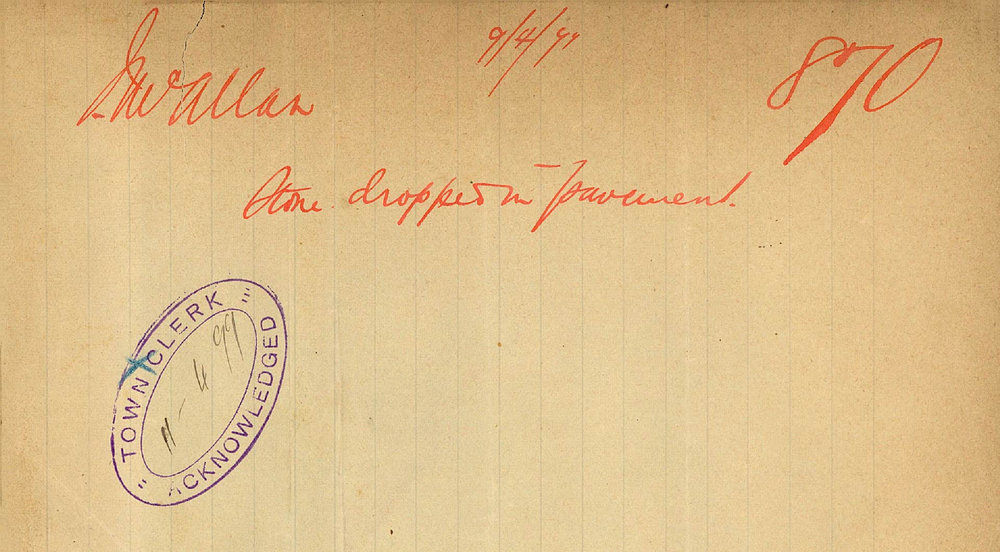 9/4/99
J. McAllan
870
Stone dropped in pavement.
TOWN CLERK
11 - 4 99
ACKNOWLEDGED